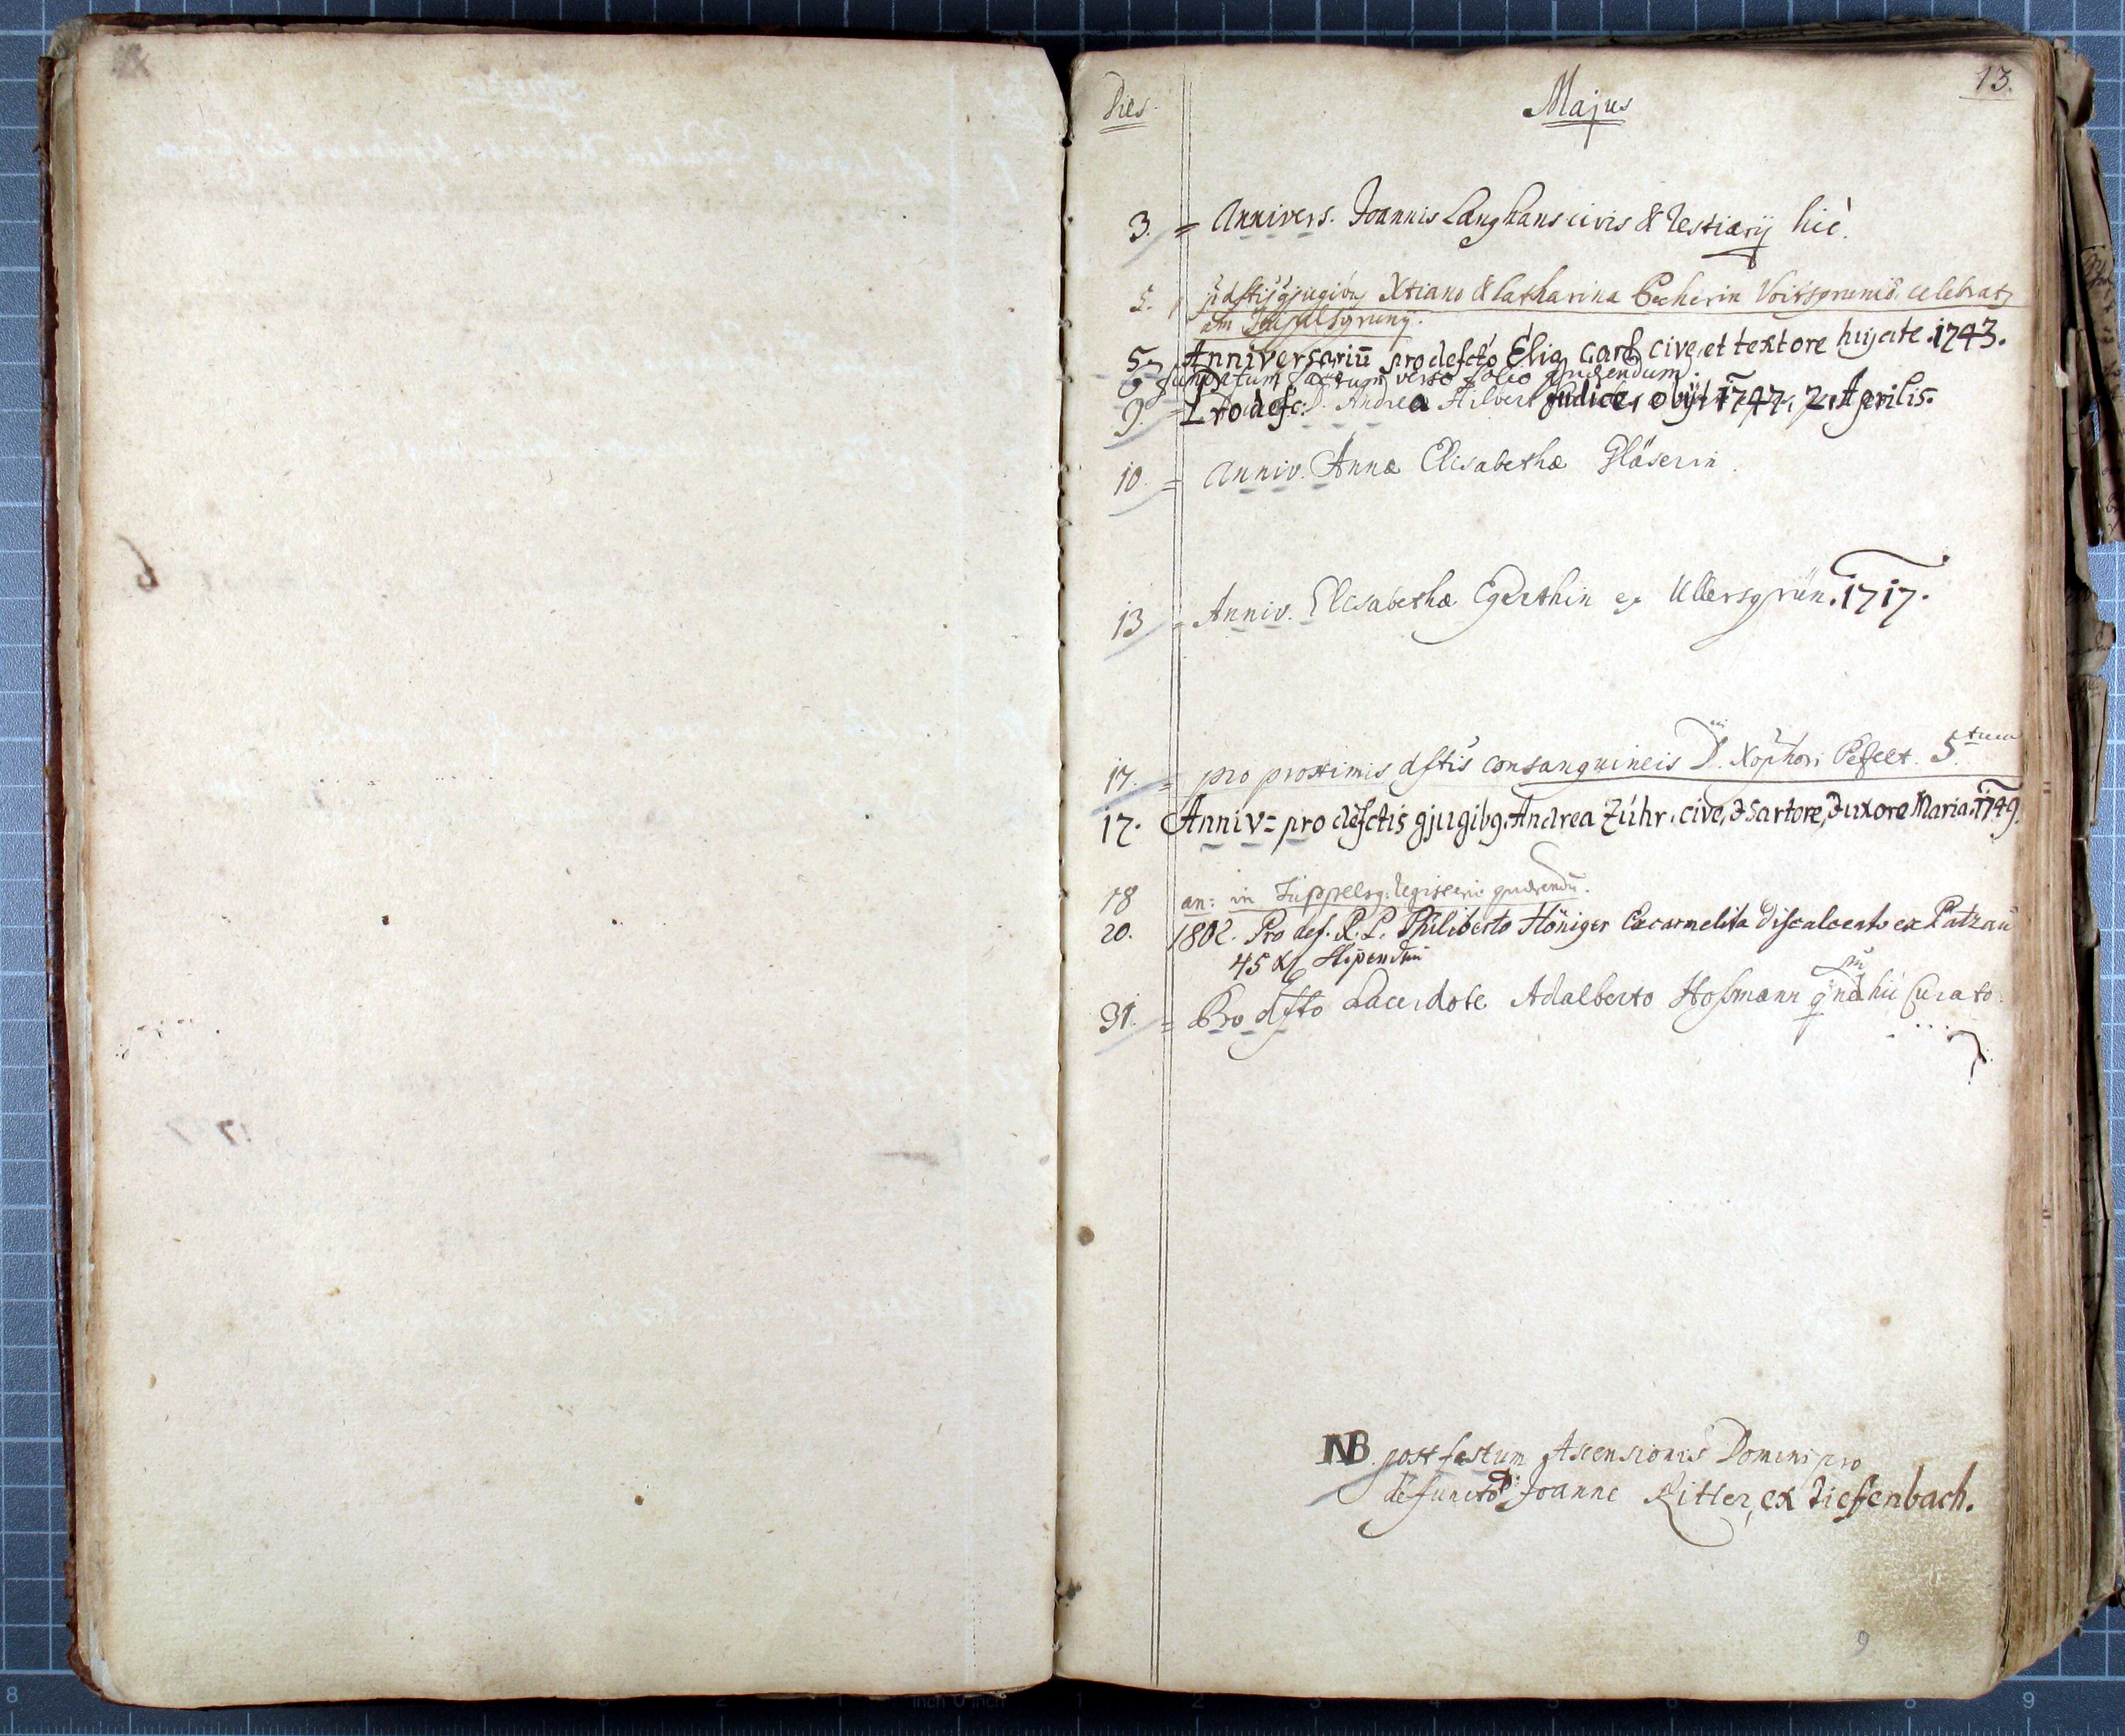 13.
Dies. Majus
3. = Annivers. Joannis Langhans civis & Vestiarij hic.
5. Xtiano & Catharina celebrat
5. Anniversariū pro defcto Elia Carl cive, et textore hujate. 1743.
6 fundatum verso folio quærendum.
9. = Pro defc: D. Andrea Hilbert Judice, obijt 1747. 2. Aprilis.
10. = Anniv. Annæ Elisabethæ Gläserin.
13 = Anniv. Elisabethæ Egerthin ex Ullersgrün. 1717.
17. = pro proximis dftis consanguineis D. Xophori 5tum
17. Anniv= pro defctis gjugibg. Andrea Zühr. cive, & Sartore, & uxore Maria. 1749.
18 an: in Tüppelsg: quærendū.
20. 1802. Pro def. R. P. Philiberto Höniger Excarmelita discalceato ex Patzau
45 xf Stipendiu
31. = Pro dfto Sacerdote Adalberto Hofmann hic Curato.
NB. post festum Ascensionis Domini pro
defuncto D: Joanne Ritter, ex Tiefenbach.
9